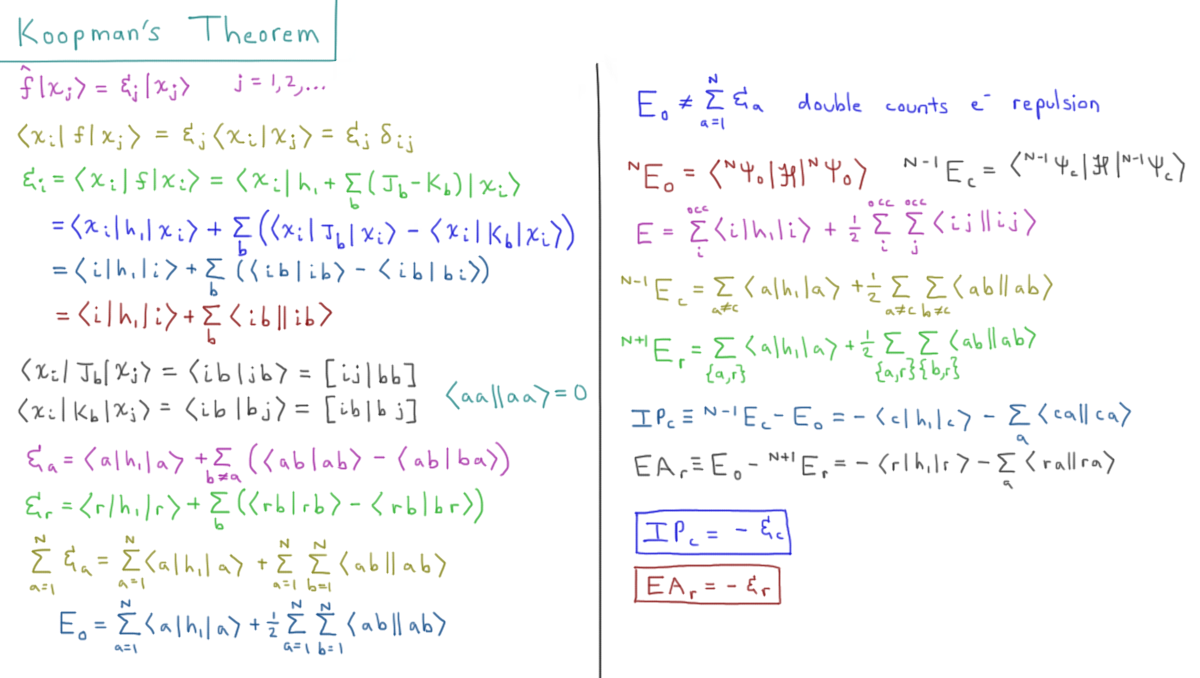 Koopman's Theorem
f̂|χⱼ⟩ = ℰⱼ|χⱼ⟩ j = 1,2,...
⟨χᵢ|f|χⱼ⟩ = ℰⱼ⟨χᵢ|χⱼ⟩ = ℰⱼ δᵢⱼ
ℰᵢ = ⟨χᵢ|f|χᵢ⟩ = ⟨χᵢ|h₁ + Σ_b (J_b - K_b)|χᵢ⟩
= ⟨χᵢ|h₁|χᵢ⟩ + Σ_b (⟨χᵢ|J_b|χᵢ⟩ - ⟨χᵢ|K_b|χᵢ⟩)
= ⟨i|h₁|i⟩ + Σ_b (⟨ib|ib⟩ - ⟨ib|bi⟩)
= ⟨i|h₁|i⟩ + Σ_b ⟨ib||ib⟩
⟨χᵢ|J_b|χⱼ⟩ = ⟨ib|jb⟩ = [ij|bb]
⟨χᵢ|K_b|χⱼ⟩ = ⟨ib|bj⟩ = [ib|bj]
⟨aa||aa⟩ = 0
ℰ_a = ⟨a|h₁|a⟩ + Σ_{b≠a} (⟨ab|ab⟩ - ⟨ab|ba⟩)
ℰ_r = ⟨r|h₁|r⟩ + Σ_b (⟨rb|rb⟩ - ⟨rb|br⟩)
Σ_{a=1}^N ℰ_a = Σ_{a=1}^N ⟨a|h₁|a⟩ + Σ_{a=1}^N Σ_{b=1}^N ⟨ab||ab⟩
E₀ = Σ_{a=1}^N ⟨a|h₁|a⟩ + ½ Σ_{a=1}^N Σ_{b=1}^N ⟨ab||ab⟩
E₀ ≠ Σ_{a=1}^N ℰ_a double counts e⁻ repulsion
ᴺE₀ = ⟨ᴺΨ₀|ℋ|ᴺΨ₀⟩ ᴺ⁻¹E_c = ⟨ᴺ⁻¹Ψ_c|ℋ|ᴺ⁻¹Ψ_c⟩
E = Σ_i^occ ⟨i|h₁|i⟩ + ½ Σ_i^occ Σ_j^occ ⟨ij||ij⟩
ᴺ⁻¹E_c = Σ_{a≠c} ⟨a|h₁|a⟩ + ½ Σ_{a≠c} Σ_{b≠c} ⟨ab||ab⟩
ᴺ⁺¹E_r = Σ_{{a,r}} ⟨a|h₁|a⟩ + ½ Σ_{{a,r}} Σ_{{b,r}} ⟨ab||ab⟩
IP_c ≡ ᴺ⁻¹E_c - E₀ = - ⟨c|h₁|c⟩ - Σ_a ⟨ca||ca⟩
EA_r ≡ E₀ - ᴺ⁺¹E_r = - ⟨r|h₁|r⟩ - Σ_a ⟨ra||ra⟩
IP_c = - ℰ_c
EA_r = - ℰ_r